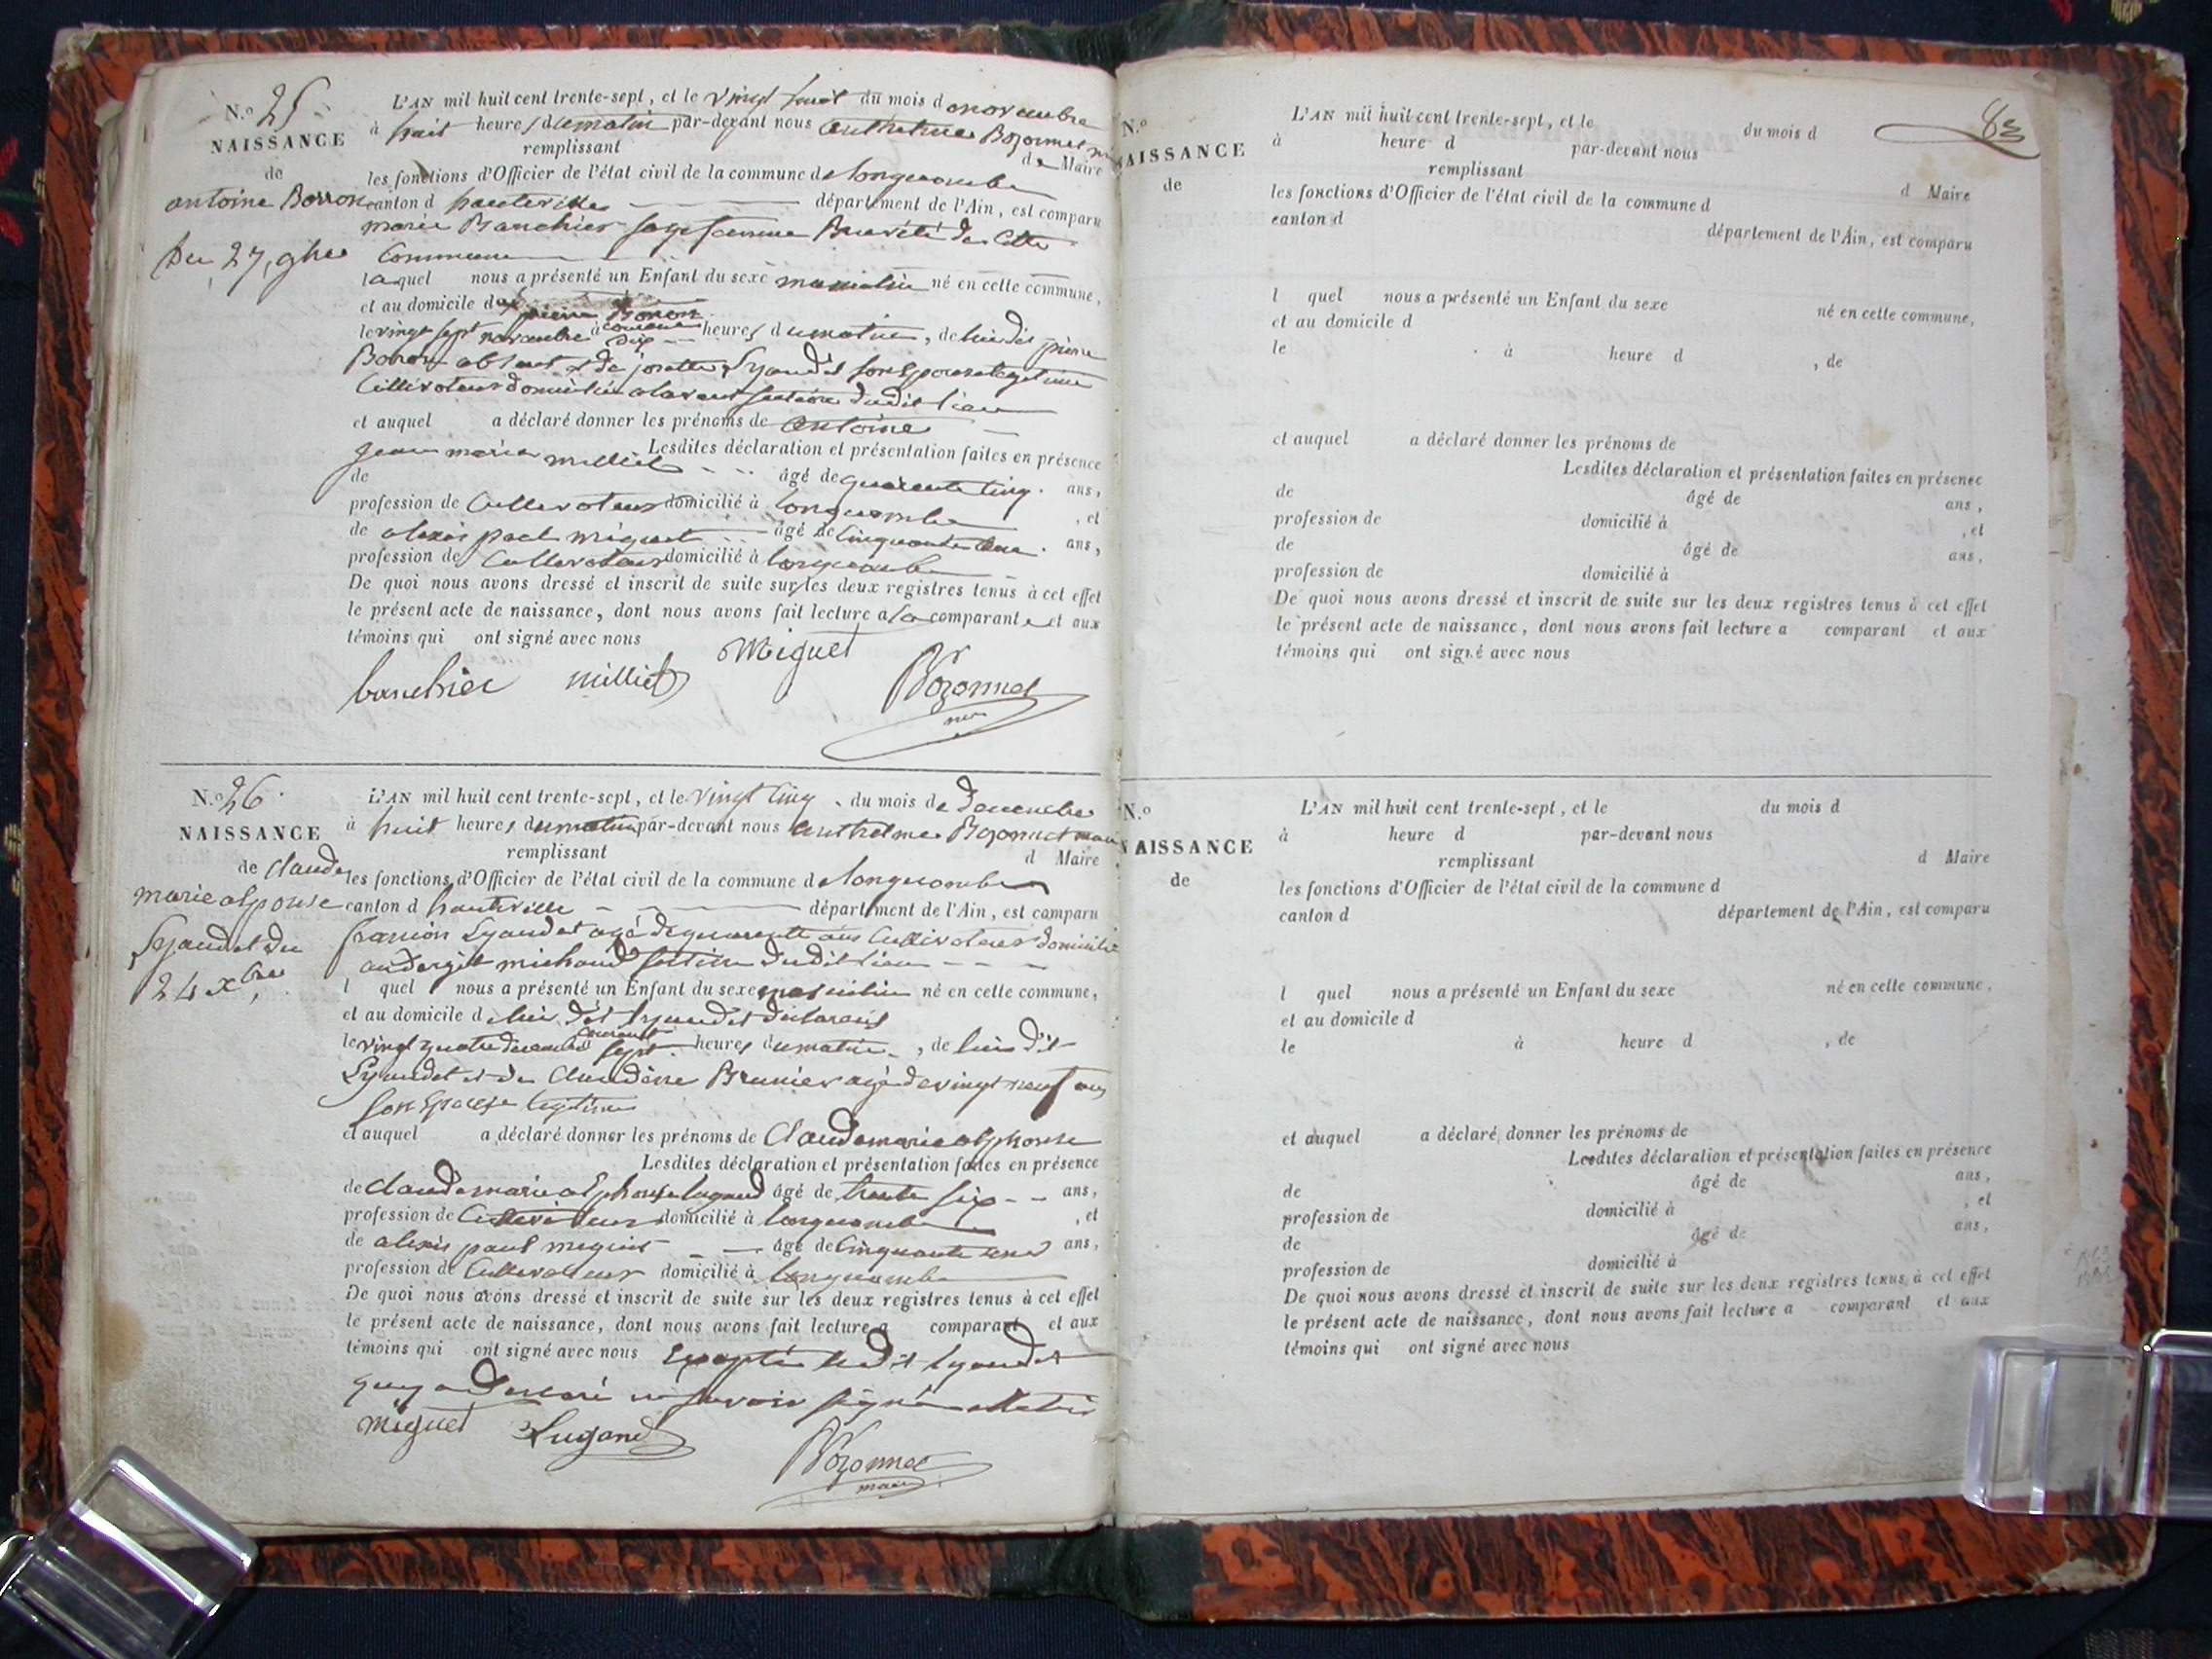 N.º 25
NAISSANCE
de
antoine Borron
Du 27, 9bre
L'AN mil huit cent trente-sept, et le vingt huit du mois de novembre
à huit heures du matin par-devant nous Anthelme Bozonnet
remplissant de Maire
les fonctions d'Officier de l'état civil de la commune de longecombe
canton d hauteville département de l'Ain, est comparu
marie Banchier sage femme Brevété de Cette
Commune
laquel nous a présenté un Enfant du sexe masculin né en cette commune,
et au domicile de pierre Borron
le vingt sept novembre courant à dix heures du matin, de lui dit pierre
Borron absent et de josette Lyaudet son Epouse legitime
Cultivateurs domiciliés section dudit lieu
et auquel a déclaré donner les prénoms de Antoine
Lesdites déclaration et présentation faites en présence
de jean marie milliet âgé de quarante cinq ans,
profession de Cultivateur domicilié à longecombe, et
de alexis paul miguet âgé de Cinquante ans,
profession de Cultivateur domicilié à longecombe
De quoi nous avons dressé et inscrit de suite sur les deux registres tenus à cet effet
le présent acte de naissance, dont nous avons fait lecture a la comparante et aux
témoins qui ont signé avec nous
Miguet
banchier milliet Bozonnet
N.º 26
NAISSANCE
de Claude
marie alponse
Lyaudet du
24 xbre
L'AN mil huit cent trente-sept, et le vingt Cinq du mois de Decembre
à huit heures du matin par-devant nous Anthelme Bozonnet maire
remplissant d Maire
les fonctions d'Officier de l'état civil de la commune de longecombe
canton d hauteville département de l'Ain, est comparu
Lyaudet agé de quarante ans Cultivateur domicilié
au michaud section dudit lieu
l quel nous a présenté un Enfant du sexe masculin né en cette commune,
et au domicile de lui dit Lyaudet declarant
le vingt quatre decembre courant sept heures du matin, de lui dit
Lyaudet et de Claudine Brunier agé de vingt neuf ans
son Epouse legitime
et auquel a déclaré donner les prénoms de Claude marie alphonse
Lesdites déclaration et présentation faites en présence
de Claude marie alphonse lugand âgé de trente six ans,
profession de Cultivateur domicilié à longecombe, et
de alexis paul miguet âgé de Cinquante ans,
profession de Cultivateur domicilié à longecombe
De quoi nous avons dressé et inscrit de suite sur les deux registres tenus à cet effet
le présent acte de naissance, dont nous avons fait lecture a comparant et aux
témoins qui ont signé avec nous Excepté ledit Lyaudet
qui a declaré ne savoir signé
Miguet Lugand
Bozonnet
maire
83
N.º
NAISSANCE
de
L'AN mil huit cent trente-sept, et le du mois d
à heure d par-devant nous
remplissant d Maire
les fonctions d'Officier de l'état civil de la commune d
canton d département de l'Ain, est comparu
l quel nous a présenté un Enfant du sexe né en cette commune,
et au domicile d
le à heure d , de
et auquel a déclaré donner les prénoms de
Lesdites déclaration et présentation faites en présence
de âgé de ans,
profession de domicilié à , et
de âgé de ans,
profession de domicilié à
De quoi nous avons dressé et inscrit de suite sur les deux registres tenus à cet effet
le présent acte de naissance, dont nous avons fait lecture a comparant et aux
témoins qui ont signé avec nous
N.º
NAISSANCE
de
L'AN mil huit cent trente-sept, et le du mois d
à heure d par-devant nous
remplissant d Maire
les fonctions d'Officier de l'état civil de la commune d
canton d département de l'Ain, est comparu
l quel nous a présenté un Enfant du sexe né en cette commune,
et au domicile d
le à heure d , de
et auquel a déclaré donner les prénoms de
Lesdites déclaration et présentation faites en présence
de âgé de ans,
profession de domicilié à , et
de âgé de ans,
profession de domicilié à
De quoi nous avons dressé et inscrit de suite sur les deux registres tenus à cet effet
le présent acte de naissance, dont nous avons fait lecture a comparant et aux
témoins qui ont signé avec nous